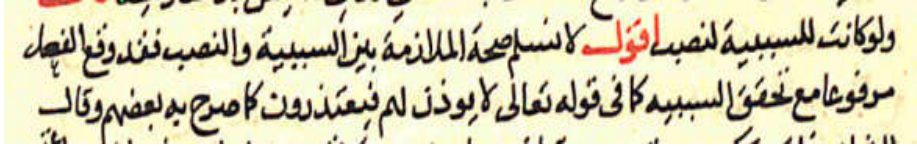 ولو كانت للسببية لنصب اقول لا نسلم صحة الملازمة بين السببية والنصب فقد وقع الفعل
مرفوعا مع تحقق السببيه كما فى قوله تعالى لا يوذن لهم فيعتذرون كما صرح به بعضهم وقال